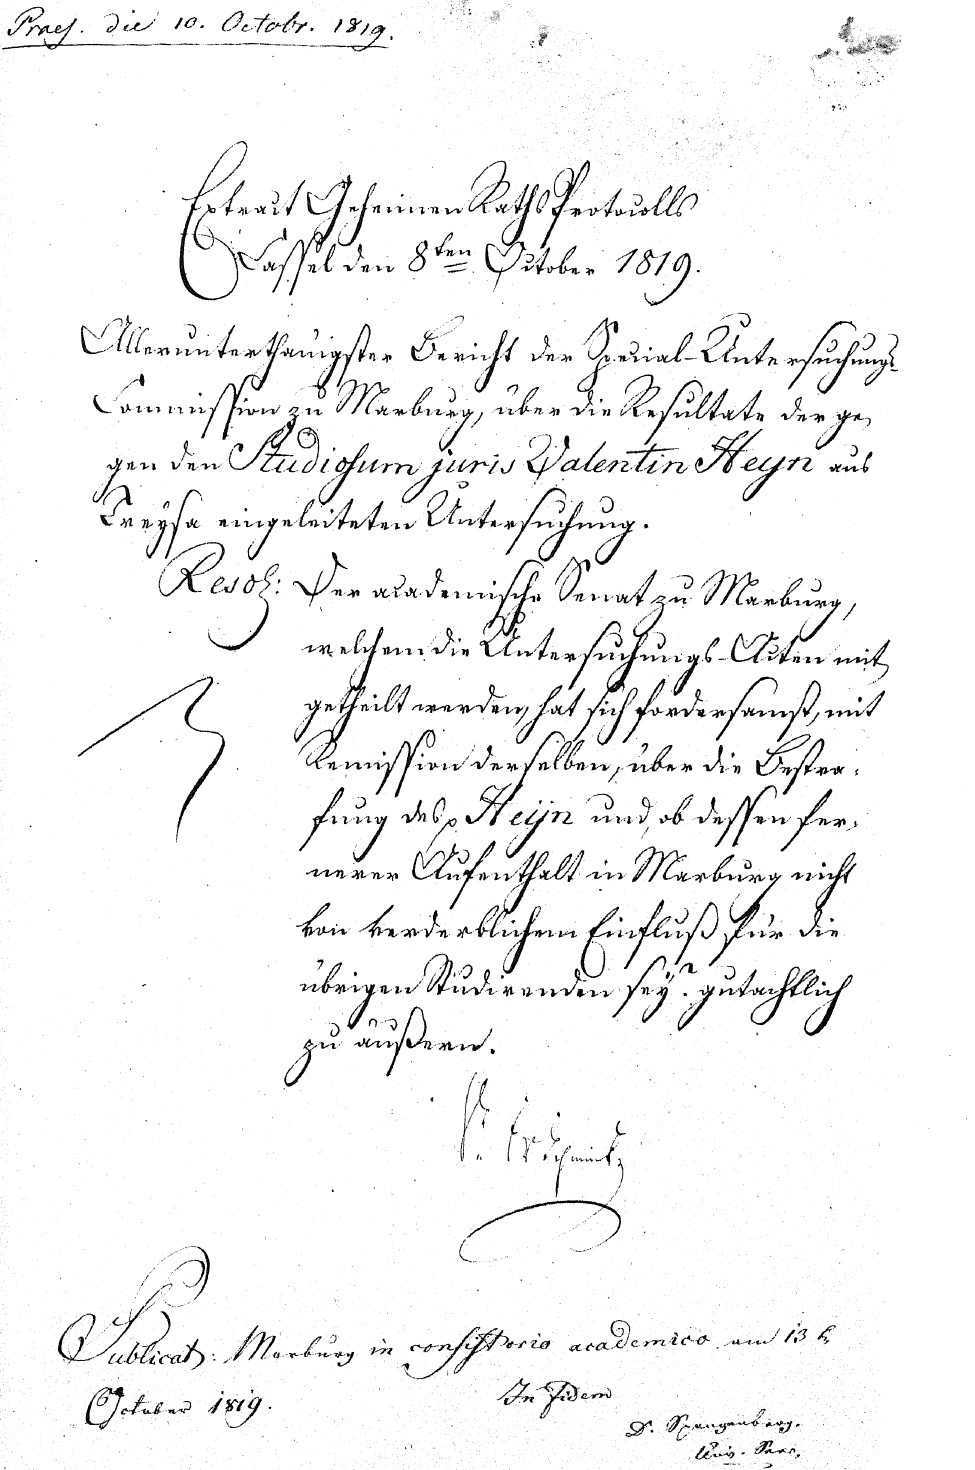 Praes. die 10. Octobr. 1819.
Extract Geheimen Raths Protocolls
Cassel den 8ten October 1819.
Allerunterthänigster Bericht der Special-Untersuchungs-
Commission zu Marburg, über die Resultate der ge,
gen den Studiosum juris Valentin Heyn aus
Treysa eingeleiteten Untersuchung.
Resol: Der academische Senat zu Marburg,
welchem die Untersuchungs-Acten mit
getheilt werden, hat sich fordersamst, mit
Remission derselben, über die Bestra,
fung des p Heijn und, ob dessen fer,
nerer Aufenthalt in Marburg nicht
von verderblichem Einfluß für die
übrigen Studirenden sey? gutachtlich
zu äußern.
Publicat: Marburg in consistorio academico am 13 t.
October 1819.
In fidem
D. Spangenberg.
Univ. Secr.